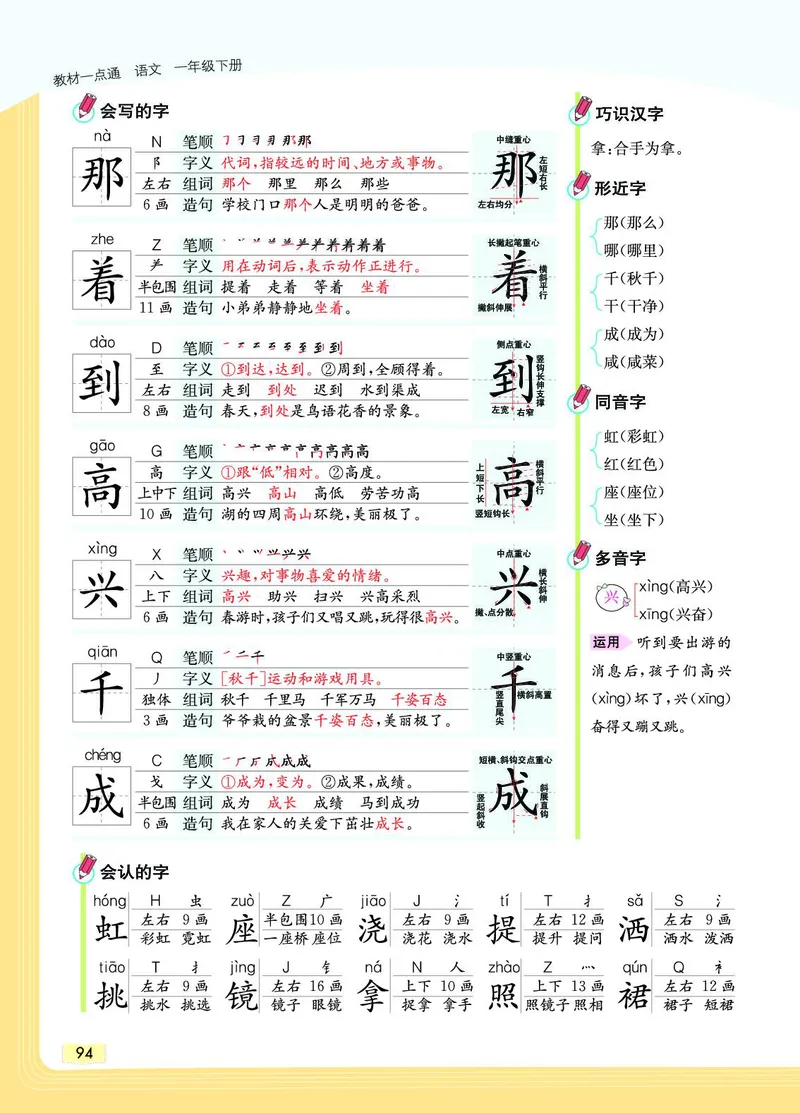 教材一点通 语文 一年级下册
会写的字
nà
那
N 笔顺
阝 字义 代词,指较远的时间、地方或事物。
左右 组词 那个 那里 那么 那些
6画 造句 学校门口那个人是明明的爸爸。
中缝重心
那
左短右长
左右均分
zhe
着
Z 笔顺
字义 用在动词后,表示动作正进行。
半包围 组词 提着 走着 等着 坐着
11画 造句 小弟弟静静地坐着。
长撇起笔重心
着
横斜平行
撇斜伸展
dào
到
D 笔顺
至 字义 ①到达,达到。②周到,全顾得着。
左右 组词 走到 到处 迟到 水到渠成
8画 造句 春天,到处是鸟语花香的景象。
侧点重心
到
竖钩长伸支撑
左宽 右窄
gāo
高
G 笔顺
高 字义 ①跟“低”相对。②高度。
上中下 组词 高兴 高山 高低 劳苦功高
10画 造句 湖的四周高山环绕,美丽极了。
上短下长
高
横斜平行
竖短钩长
xìng
兴
X 笔顺
八 字义 兴趣,对事物喜爱的情绪。
上下 组词 高兴 助兴 扫兴 兴高采烈
6画 造句 春游时,孩子们又唱又跳,玩得很高兴。
中点重心
兴
横长斜伸
撇、点分散
qiān
千
Q 笔顺
丿 字义 [秋千]运动和游戏用具。
独体 组词 秋千 千里马 千军万马 千姿百态
3画 造句 爷爷栽的盆景千姿百态,美丽极了。
中竖重心
千
横斜高置
竖直尾尖
chéng
成
C 笔顺
戈 字义 ①成为,变为。②成果,成绩。
半包围 组词 成为 成长 成绩 马到成功
6画 造句 我在家人的关爱下茁壮成长。
短横、斜钩交点重心
成
竖起斜收
斜展直钩
巧识汉字
拿:合手为拿。
形近字
那(那么)
哪(哪里)
千(秋千)
干(干净)
成(成为)
咸(咸菜)
同音字
虹(彩虹)
红(红色)
座(座位)
坐(坐下)
多音字
兴
xìng(高兴)
xīng(兴奋)
运用 听到要出游的
消息后,孩子们高兴
(xìng)坏了,兴(xīng)
奋得又蹦又跳。
会认的字
hóng H 虫 zuò Z 广 jiāo J 氵 tí T 扌 sǎ S 氵
虹 左右 9画 座 半包围10画 浇 左右 9画 提 左右 12画 洒 左右 9画
彩虹 霓虹 一座桥 座位 浇花 浇水 提升 提问 洒水 泼洒
tiāo T 扌 jìng J 钅 ná N 人 zhào Z 灬 qún Q 衤
挑 左右 9画 镜 左右 16画 拿 上下 10画 照 上下 13画 裙 左右 12画
挑水 挑选 镜子 眼镜 捉拿 拿手 照镜子 照相 裙子 短裙
94